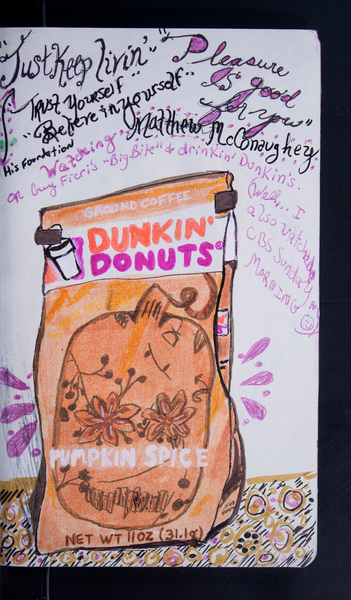 "Just Keep livin'"
"Pleasure
is good
for you"
"Trust yourself"
"Believe in yourself"
Matthew McConaughey
His Foundation
Watching
on Guy Fieri's "Big Bite" & drinkin' Dunkin's.
(Well... I
also watched
CBS Sunday
MORNING
GROUND COFFEE
DUNKIN'
DONUTS®
PUMPKIN SPICE
NET WT 11 OZ (31.1g)